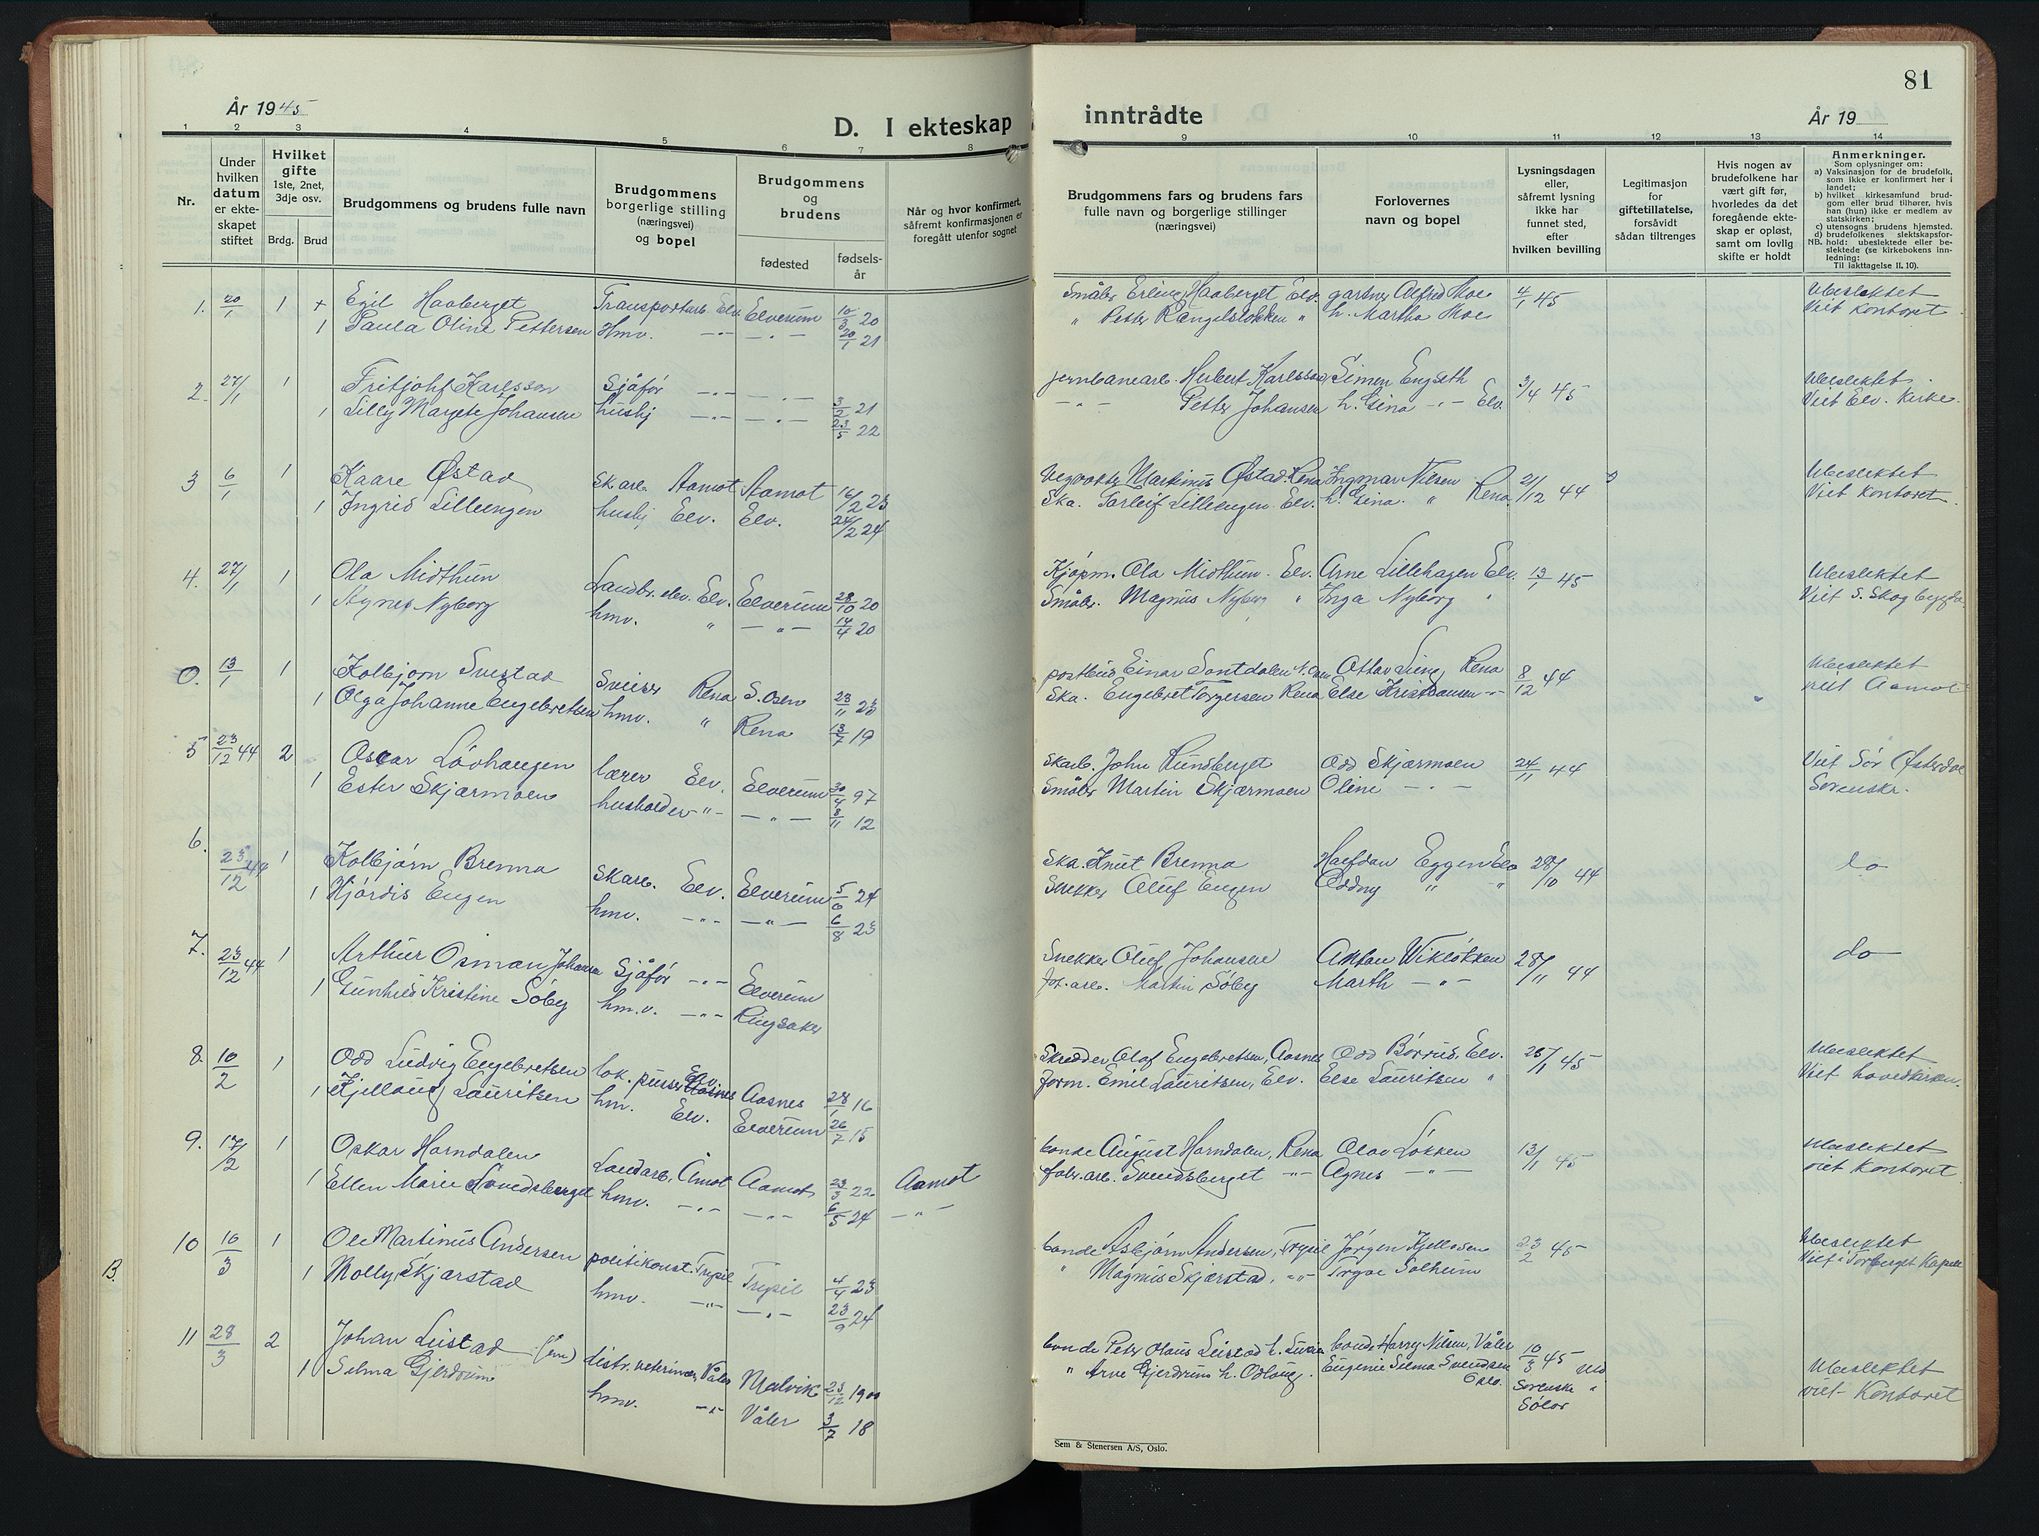 81
År 1945
D. I ekteskap
inntrådte
År 19
1 2 3 4 5 6 7 8
9 10 11 12 13 14
Nr.
Under hvilken datum er ekteskapet stiftet
Hvilket gifte
1ste, 2net, 3dje osv.
Brdg. Brud
Brudgommens og brudens fulle navn
Brudgommens borgerlige stilling (næringsvei) og bopel
Brudgommens og brudens
fødested
fødselsår
Når og hvor konfirmert, såfremt konfirmasjonen er foregått utenfor sognet
Brudgommens fars og brudens fars
fulle navn og borgerlige stillinger
(næringsvei)
Forlovernes
navn og bopel
Lysningsdagen eller, såfremt lysning ikke har funnet sted, efter hvilken bevilling
Legitimasjon for giftetillatelse, forsåvidt sådan tiltrenges
Hvis nogen av brudefolkene har vært gift før, hvorledes da det foregående ekteskap er opløst, samt om lovlig skifte er holdt
Anmerkninger.
Som oplysninger om:
a) Vaksinasjon for de brudefolk, som ikke er konfirmert her i landet;
b) hvilket kirkesamfund brudgom eller brud tilhører, hvis han (hun) ikke er medlem av statskirken;
c) utensogns brudens hjemsted.
d) brudefolkenes slektskapsforhold: ubeslektede eller beslektede (se kirkebokens innledning;
NB.
Til iakttagelse II. 10).
1. 20/1 1 + Egil Haaberget Transportarb. Elv. Elverum 10/3 20 Småbr. Erling Haaberget Elv. gartner Alfred Moe 4/1 45 Ubeslektet
1 Paula Oline Pettersen Hmv. -"- -"- 20/1 21 " Petter Rængelsløkken " h. Martha Moe Viet Kontoret
2. 27/1 1 Fritjohf Karlsson Sjåfør -"- -"- 3/2 21 jernbanearb. Hubert Karlsson Simen Engseth 3/4 45 Ubeslektet
1 Lilly Margete Johansen husbj -"- -"- 23/5 22 -"- Petter Johansen h. Gina -"- Elv. Viet Elv. Kirke
3 6/1 1 Kaare Østad Skarb. Aamot Aamot 16/2 23 Martinus Østad. Rena Ingmar Nilsen 21/12 44 Ubeslektet
1 Ingrid Lilleengen husbj Elv. Elv. 24/2 24 Ska. Torleif Lilleengen Elv. h. Gina " Rena Viet Kontoret
4. 27/1 1 Ola Midthun Landbr. elev. Elv. Elverum 28/10 20 Kjøpm. Ola Midthun. Elv. Arne Lillehagen Elv. 13/1 45 Ubeslektet
1 Agnes Nyborg hmv. " -"- 14/4 20 Småbr. Magnus Nyborg " Inga Nyborg " Viet S. Skogbygda
0. 13/1 1 Kolbjørn Svestad Sveiser Rena S. Osen 23/11 23 postbud Einar Sontdalen N. Osen Ottar Lung Rena 8/12 44 Ubeslektet
1 Olga Johanne Engebretsen hmv. " Rena 13/7 19 Ska. Engebret Torgersen Rena Else Kristiansen -"- viet Aamot
5 23/12 44 2 Oscar Løvhaugen lærer Elv. Elverum 30/4 97 Skarb. John Rundberget Odd Skjærmoen 24/11 44 Viet Sør Østerdal
1 Ester Skjærmoen husholder -"- -"- 8/11 12 Småbr Martin Skjærmoen Oline -"- Sorenskr.
6. 23/12 44 1 Kolbjørn Brenna Skarb. Elv. Elverum 5/6 24 Ska. Knut Brenna Halfdan Eggen Elv 28/10 44 do
1 Hjørdis Engen hmv. -"- -"- 6/8 23 Snekker Oluf Engen Oddny " "
7. 23/12 44 1 Arthur Osman Johansen Sjåfør -"- Elverum Snekker Oluf Johansen Anton Wikløkken 28/11 44 do
1 Gunhild Kristine Søby hm.v. -"- Ringsaker Jot.arb. Martin Søby Marth -"-
8. 10/2 1 Odd Ludvig Engebretsen lok. pusser Elv. Aasnes Aasnes 28/1 16 Skredder Olaf Engebretsen, Aasnes Odd Børrud, Elv. 25/1 45 Ubeslektet
1 Kjellaug Lauritsen hm. Elv. Elverum 26/7 15 Form. Emil Lauritsen, Elv. Else Lauritsen " Viet hovedkirken
9. 17/2 1 Oskar Horndalen Landarb. Åmot Aamot 23/3 22 Aamot bonde August Horndalen, Rena Olav Løkken 13/1 45 Ubeslektet
1 Ellen Marie Svendsberget hmv. -"- -"- 6/5 24 -"- fabr.arb. Svendsberget -"- Agnes -"- viet Kontoret
10 10/3 1 Ole Martinus Andersen politikonst. Trysil Trysil 4/4 23 bonde Asbjørn Andersen, Trysil Jørgen Kjellesen 23/2 45 Ubeslektet
B. 1 Molly Skjærstad hmv. -"- -"- 23/9 24 " Magnus Skjærstad, -"- Trgve Solheim Viet i Torberget Kapell
11 28/3 2 Johan Leistad (enn) distr. veterinær, Våler Malvik 23/12 1900 bonde Peter Olaus Leistad h. Lucie bonde Harry Nilsen, Våler 10/3 45 Ubeslektet
1 Selma Gjerdrum hmv. -"- Våler 3/7 18 " Arne Gjerdrum h. Oslaug. Eugenie Selma Svendsen Oslo. Ved Sorenskr. i Solør viet Kontoret
Sem & Stenersen A/S, Oslo.